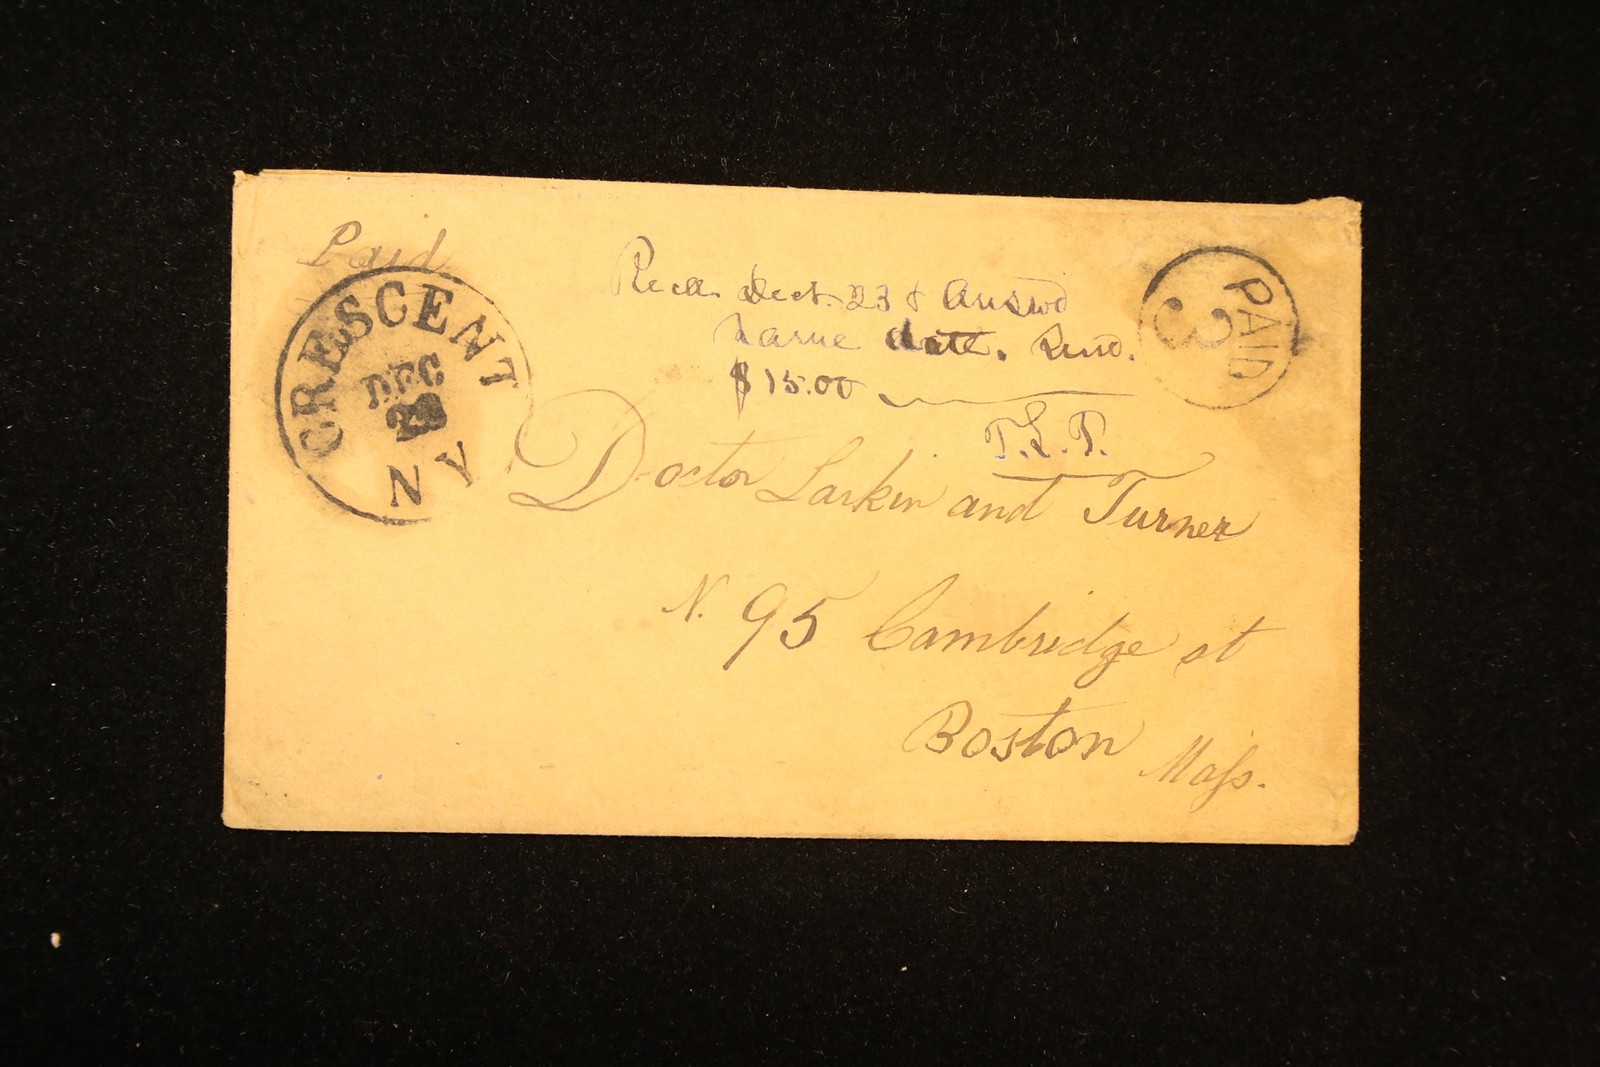 Paid
CRESCENT
DEC
N Y
PAID
3
Recd. Dect. 23 & Answd
same date. Recd.
$15.00
T.L.T.
Doctor Larkin and Turner
N. 95 Cambridge st
Boston Mass.